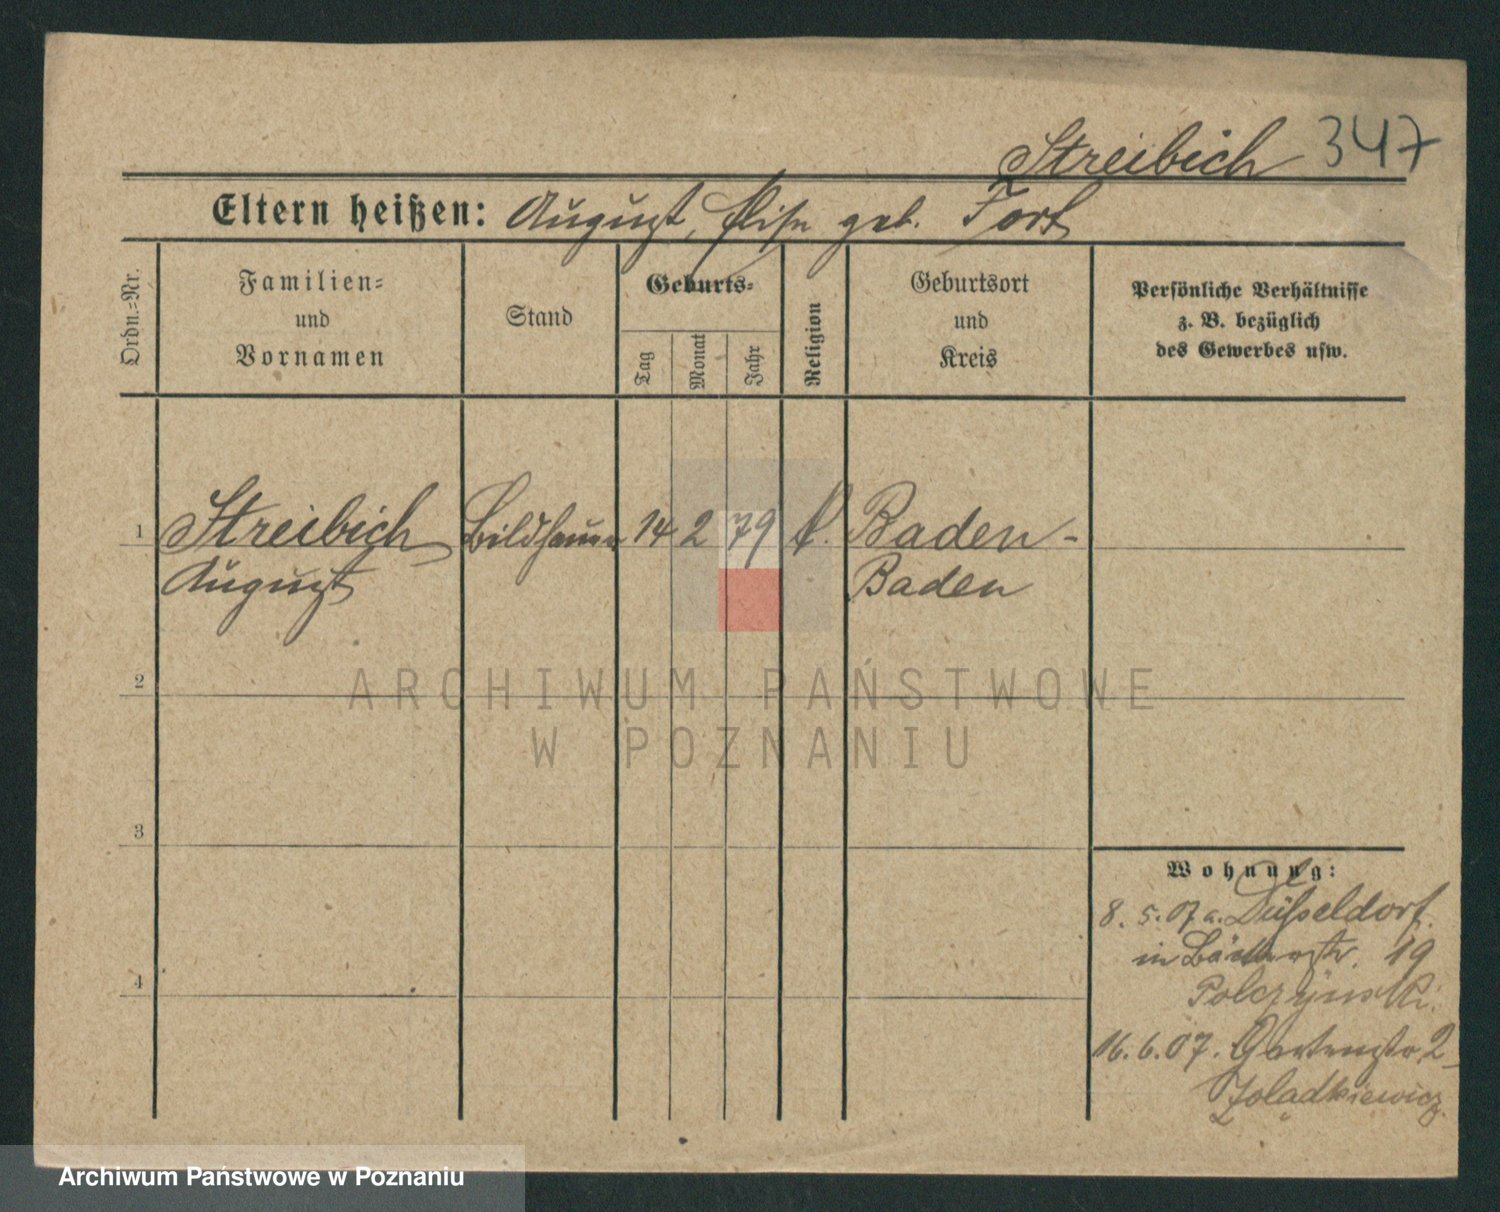 Streibich 347
Eltern heißen: August, Elise geb. Fort
Ordn.-Nr.
Familien-
und
Vornamen
Stand
Geburts-
Tag
Monat
Jahr
Religion
Geburtsort
und
Kreis
Persönliche Verhältnisse
z. B. bezüglich
des Gewerbes usw.
1 Streibich Bildhauer 14 2 79 k. Baden-
August Baden
2
ARCHIWUM PAŃSTWOWE
W POZNANIU
3
Wohnung:
8. 5. 07 a. Düsseldorf.
in Bäckerstr. 19
Polczyński.
4
16. 6. 07. Gartenstr. 2
Żołądkiewicz.
Archiwum Państwowe w Poznaniu